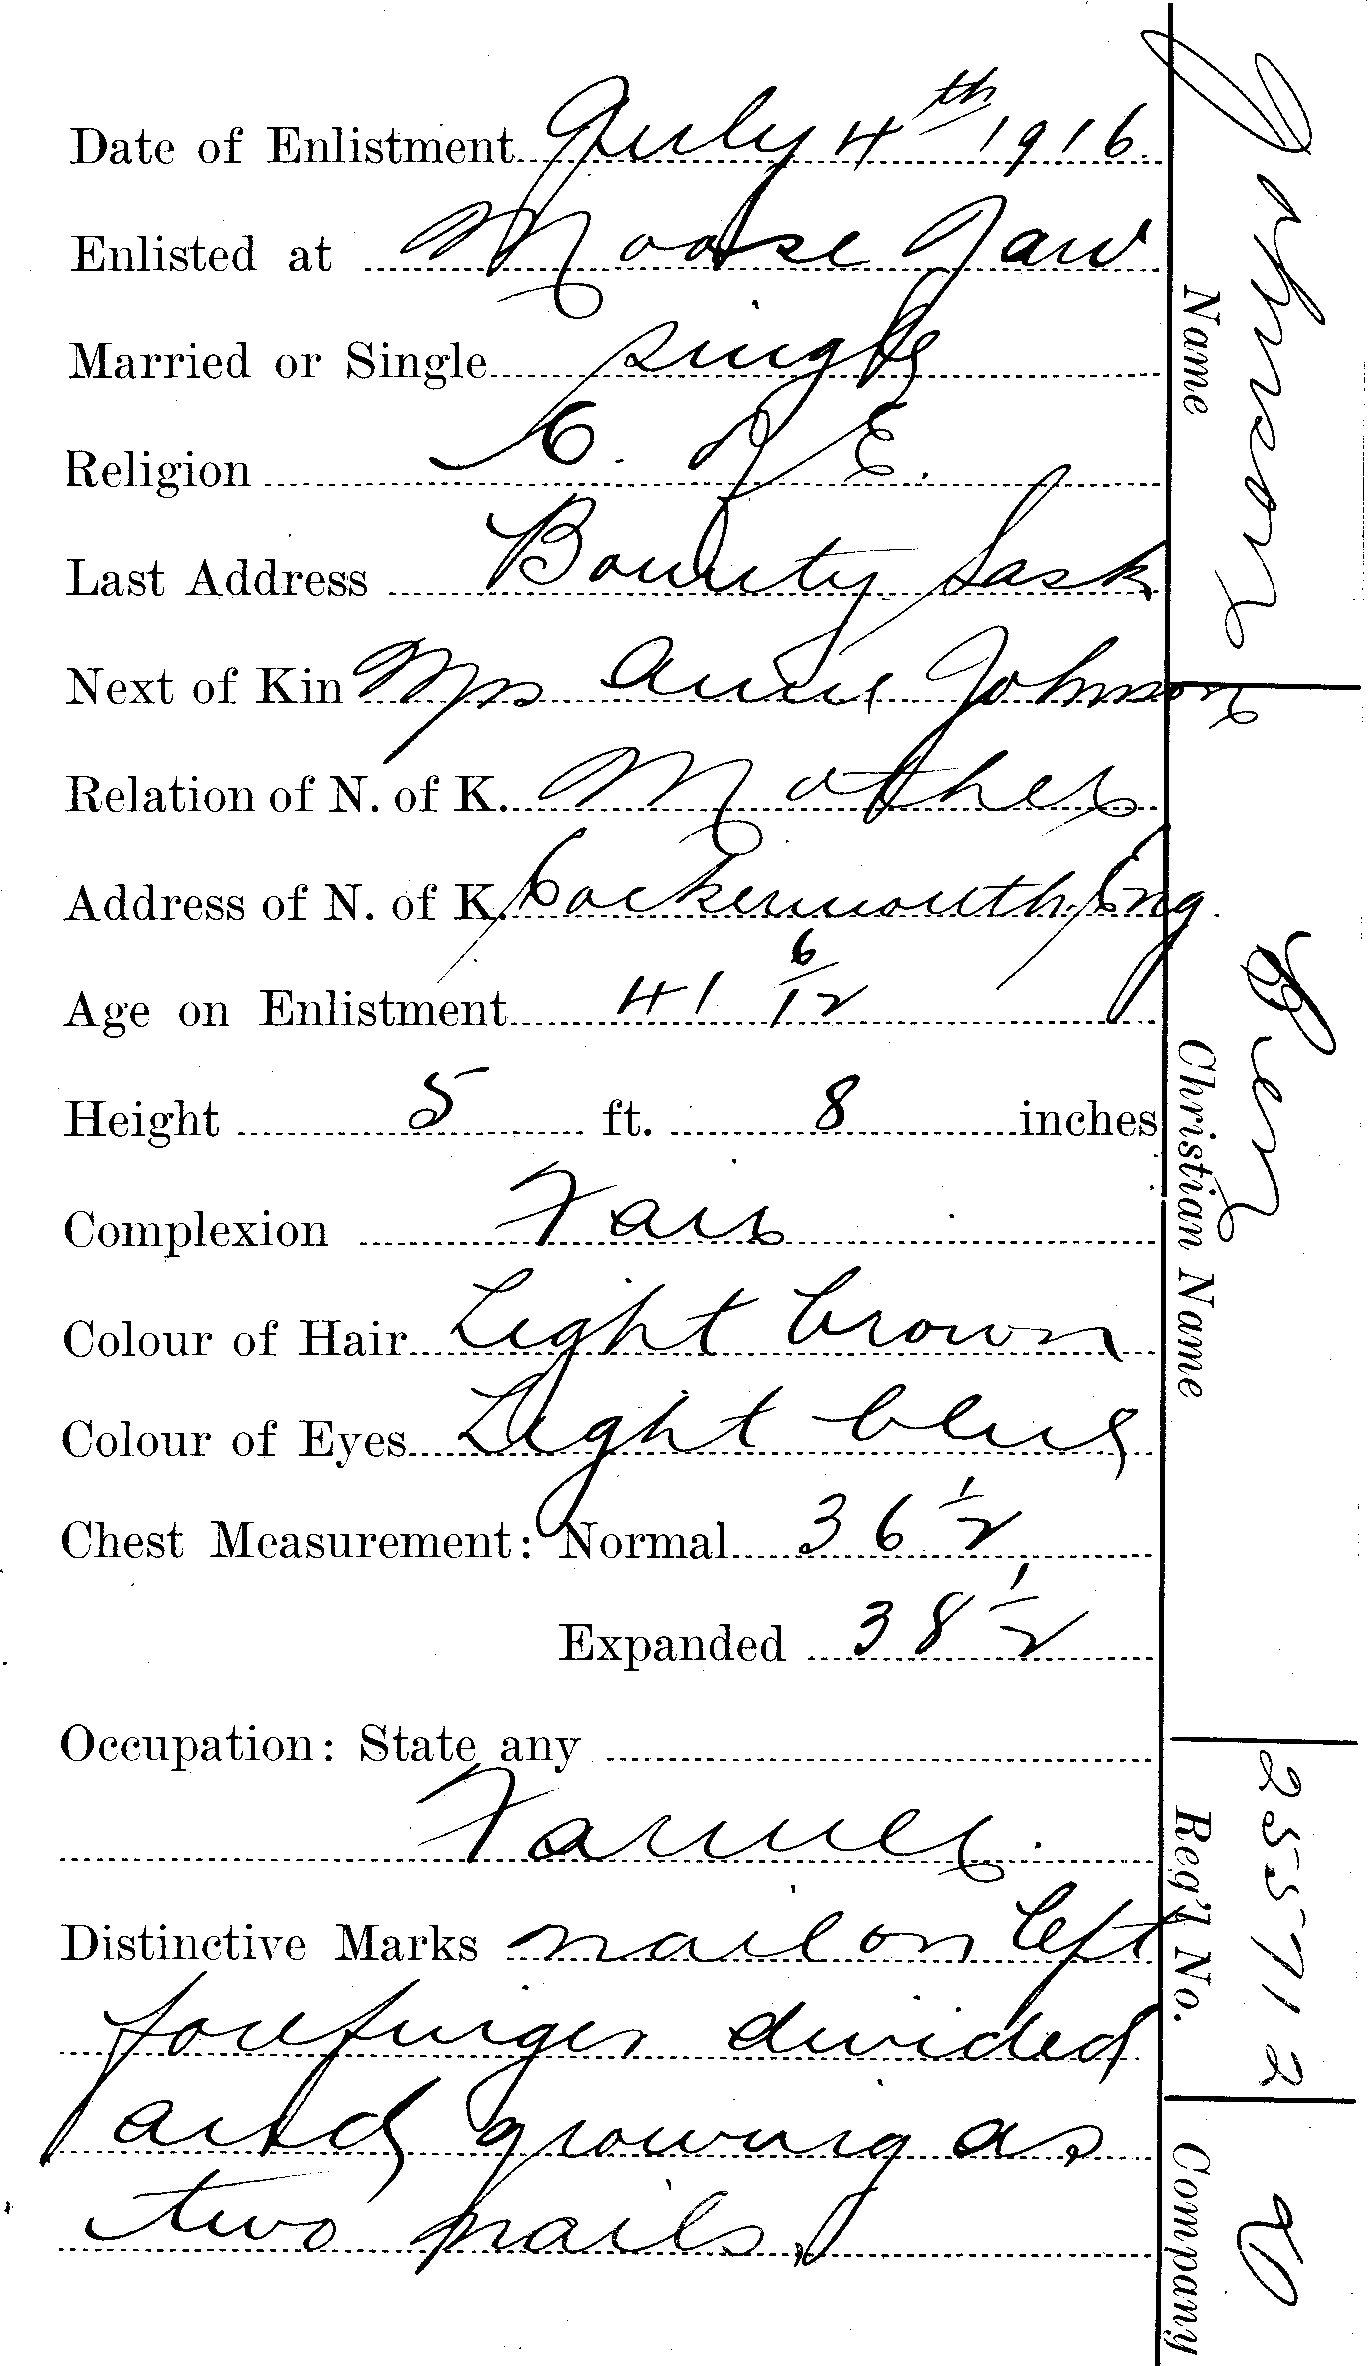 Date of Enlistment July 4th 1916.
Enlisted at Moose Jaw
Married or Single single
Religion C. of E.
Last Address Bounty Sask
Next of Kin Mrs Annie Johnson
Relation of N. of K. Mother
Address of N. of K. Cockermouth, Eng.
Age on Enlistment 41 6/12
Height 5 ft. 8 inches
Complexion Fair
Colour of Hair Light brown
Colour of Eyes Light blue
Chest Measurement: Normal 36 1/2
Expanded 38 1/2
Occupation: State any
Farmer.
Distinctive Marks nail on left
forefinger divided
and growing as
two nails.
Johnson
Name
Ben
Christian Name
255712
Reg'l No.
Company